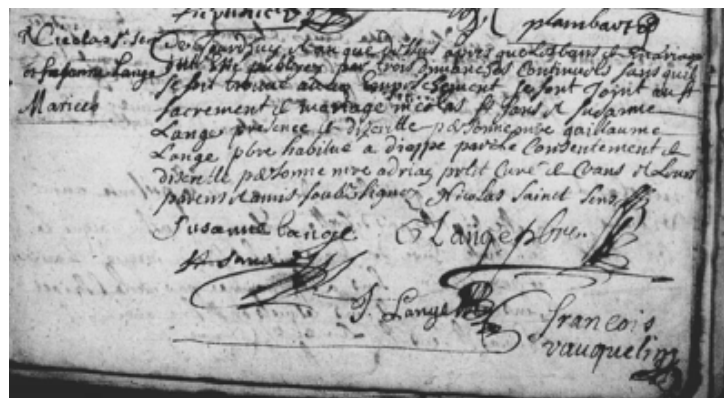 plambart
Nicolas St Sen
et susanne Lange
Mariés
Ce jourdhuy an que dessus apres que les bans de mariage
ont esté publiez par trois dimanches continuels sans quil
se soit trouué aucun empeschement se sont Joint au St
sacrement de mariage nicolas St Sans et Susanne
Lange presence de discrette personne mre guillaume
Lange pbre habitué a dieppe par le Consentement de
discrette personne mre adrian petit Curé de et Leurs
parens et amis soubz signez Nicolas Sainct Sens
Susanne Lange G Lange pbre
St Sans
J. Lange
francois
vauquelin